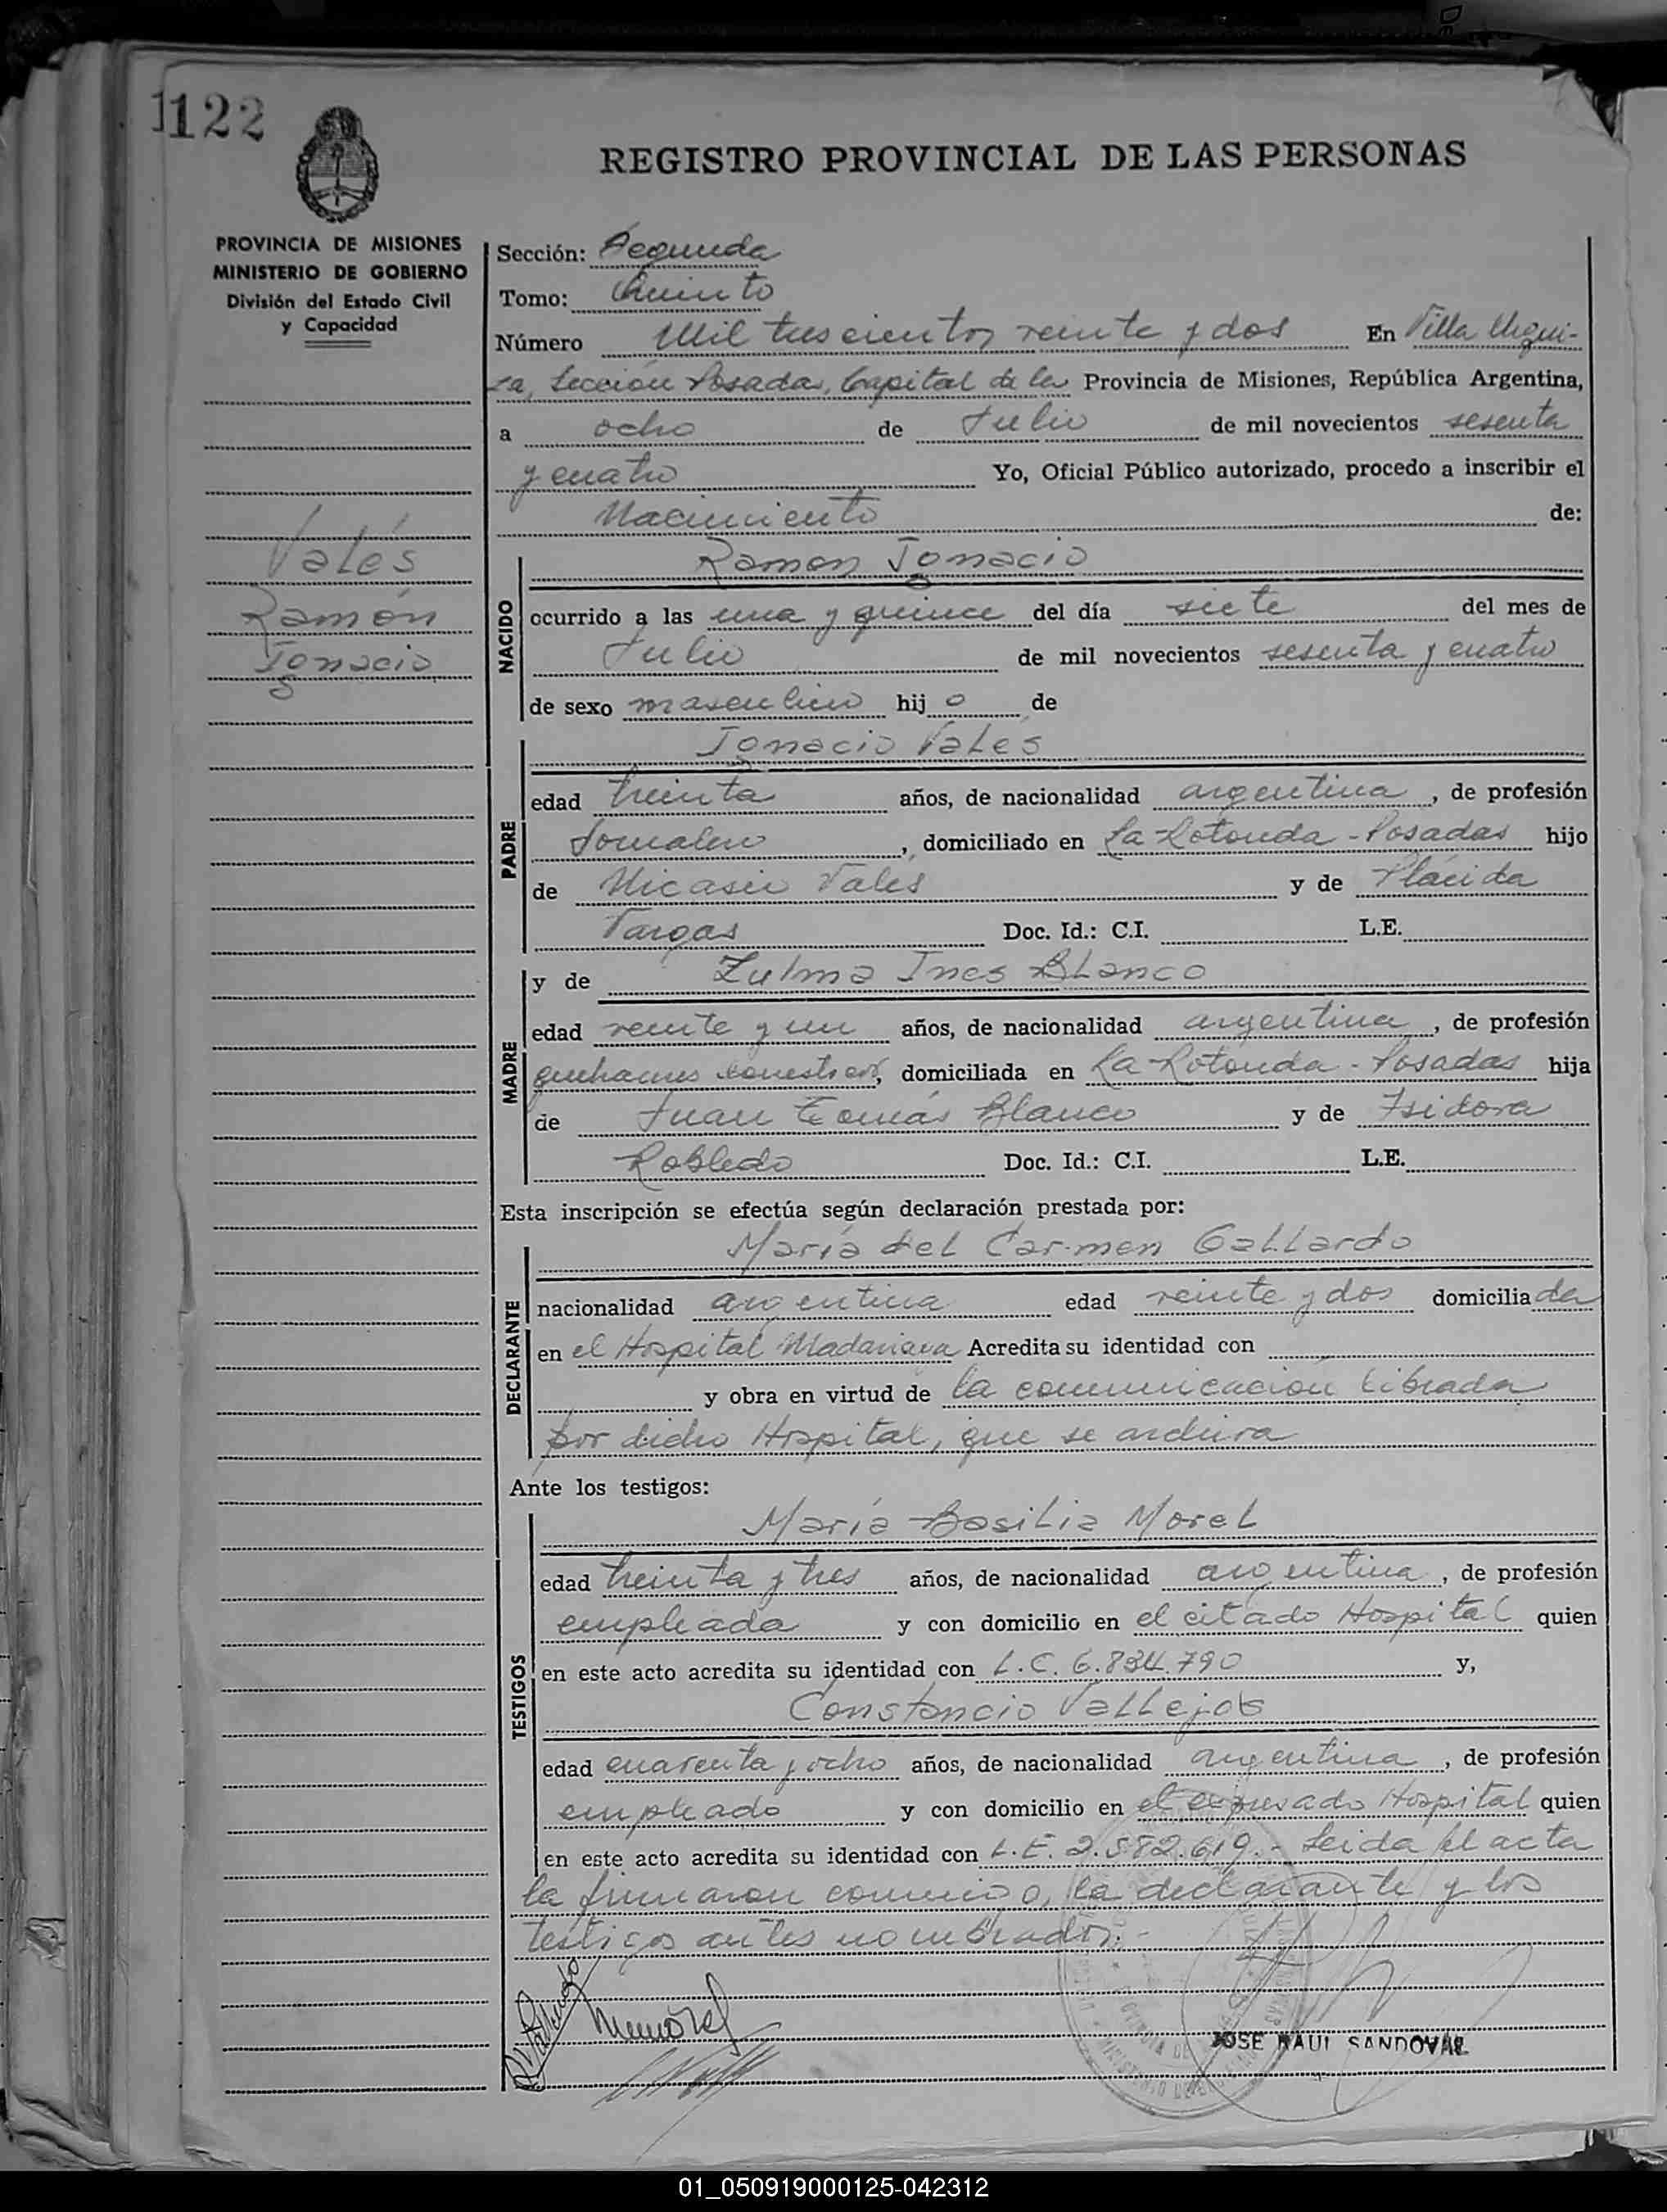 1122
REGISTRO PROVINCIAL DE LAS PERSONAS
PROVINCIA DE MISIONES
MINISTERIO DE GOBIERNO
División del Estado Civil
y Capacidad
Valés
Ramón
Ignacio
Sección: Segunda
Tomo: Quinto
Número Mil trescientos veinte y dos En Villa Urqui-
za, Sección Posadas, Capital de la Provincia de Misiones, República Argentina,
a ocho de Julio de mil novecientos sesenta
y cuatro Yo, Oficial Público autorizado, procedo a inscribir el
Nacimiento de:
NACIDO
Ramon Ignacio
ocurrido a las una y quince del día siete del mes de
Julio de mil novecientos sesenta y cuatro
de sexo masculino hijo de
PADRE
Ignacio Vales
edad treinta años, de nacionalidad argentina, de profesión
Jornalero, domiciliado en La Rotonda - Posadas hijo
de Nicasio Vales y de Plácida
Vargas Doc. Id.: C.I. L.E.
MADRE
y de Zulma Ines Blanco
edad veinte y un años, de nacionalidad argentina, de profesión
quehaceres domésticos, domiciliada en La Rotonda - Posadas hija
de Juan Tomás Blanco y de Isidora
Robledo Doc. Id.: C.I. L.E.
Esta inscripción se efectúa según declaración prestada por:
DECLARANTE
María del Carmen Gallardo
nacionalidad argentina edad veinte y dos domiciliada
en el Hospital Madariaga Acredita su identidad con
y obra en virtud de la comunicación librada
por dicho Hospital, que se archiva
Ante los testigos:
TESTIGOS
María Basilia Morel
edad treinta y tres años, de nacionalidad argentina, de profesión
empleada y con domicilio en el citado Hospital quien
en este acto acredita su identidad con L.C. 6.834.790 y,
Constancio Vallejos
edad cuarenta y ocho años, de nacionalidad argentina, de profesión
empleado y con domicilio en el expresado Hospital quien
en este acto acredita su identidad con L.E. 2.582.619.- Leida el acta
la firmaron conmigo, la declarante y los
testigos antes nombrados.-
JOSE RAUL SANDOVAL
01_050919000125-042312